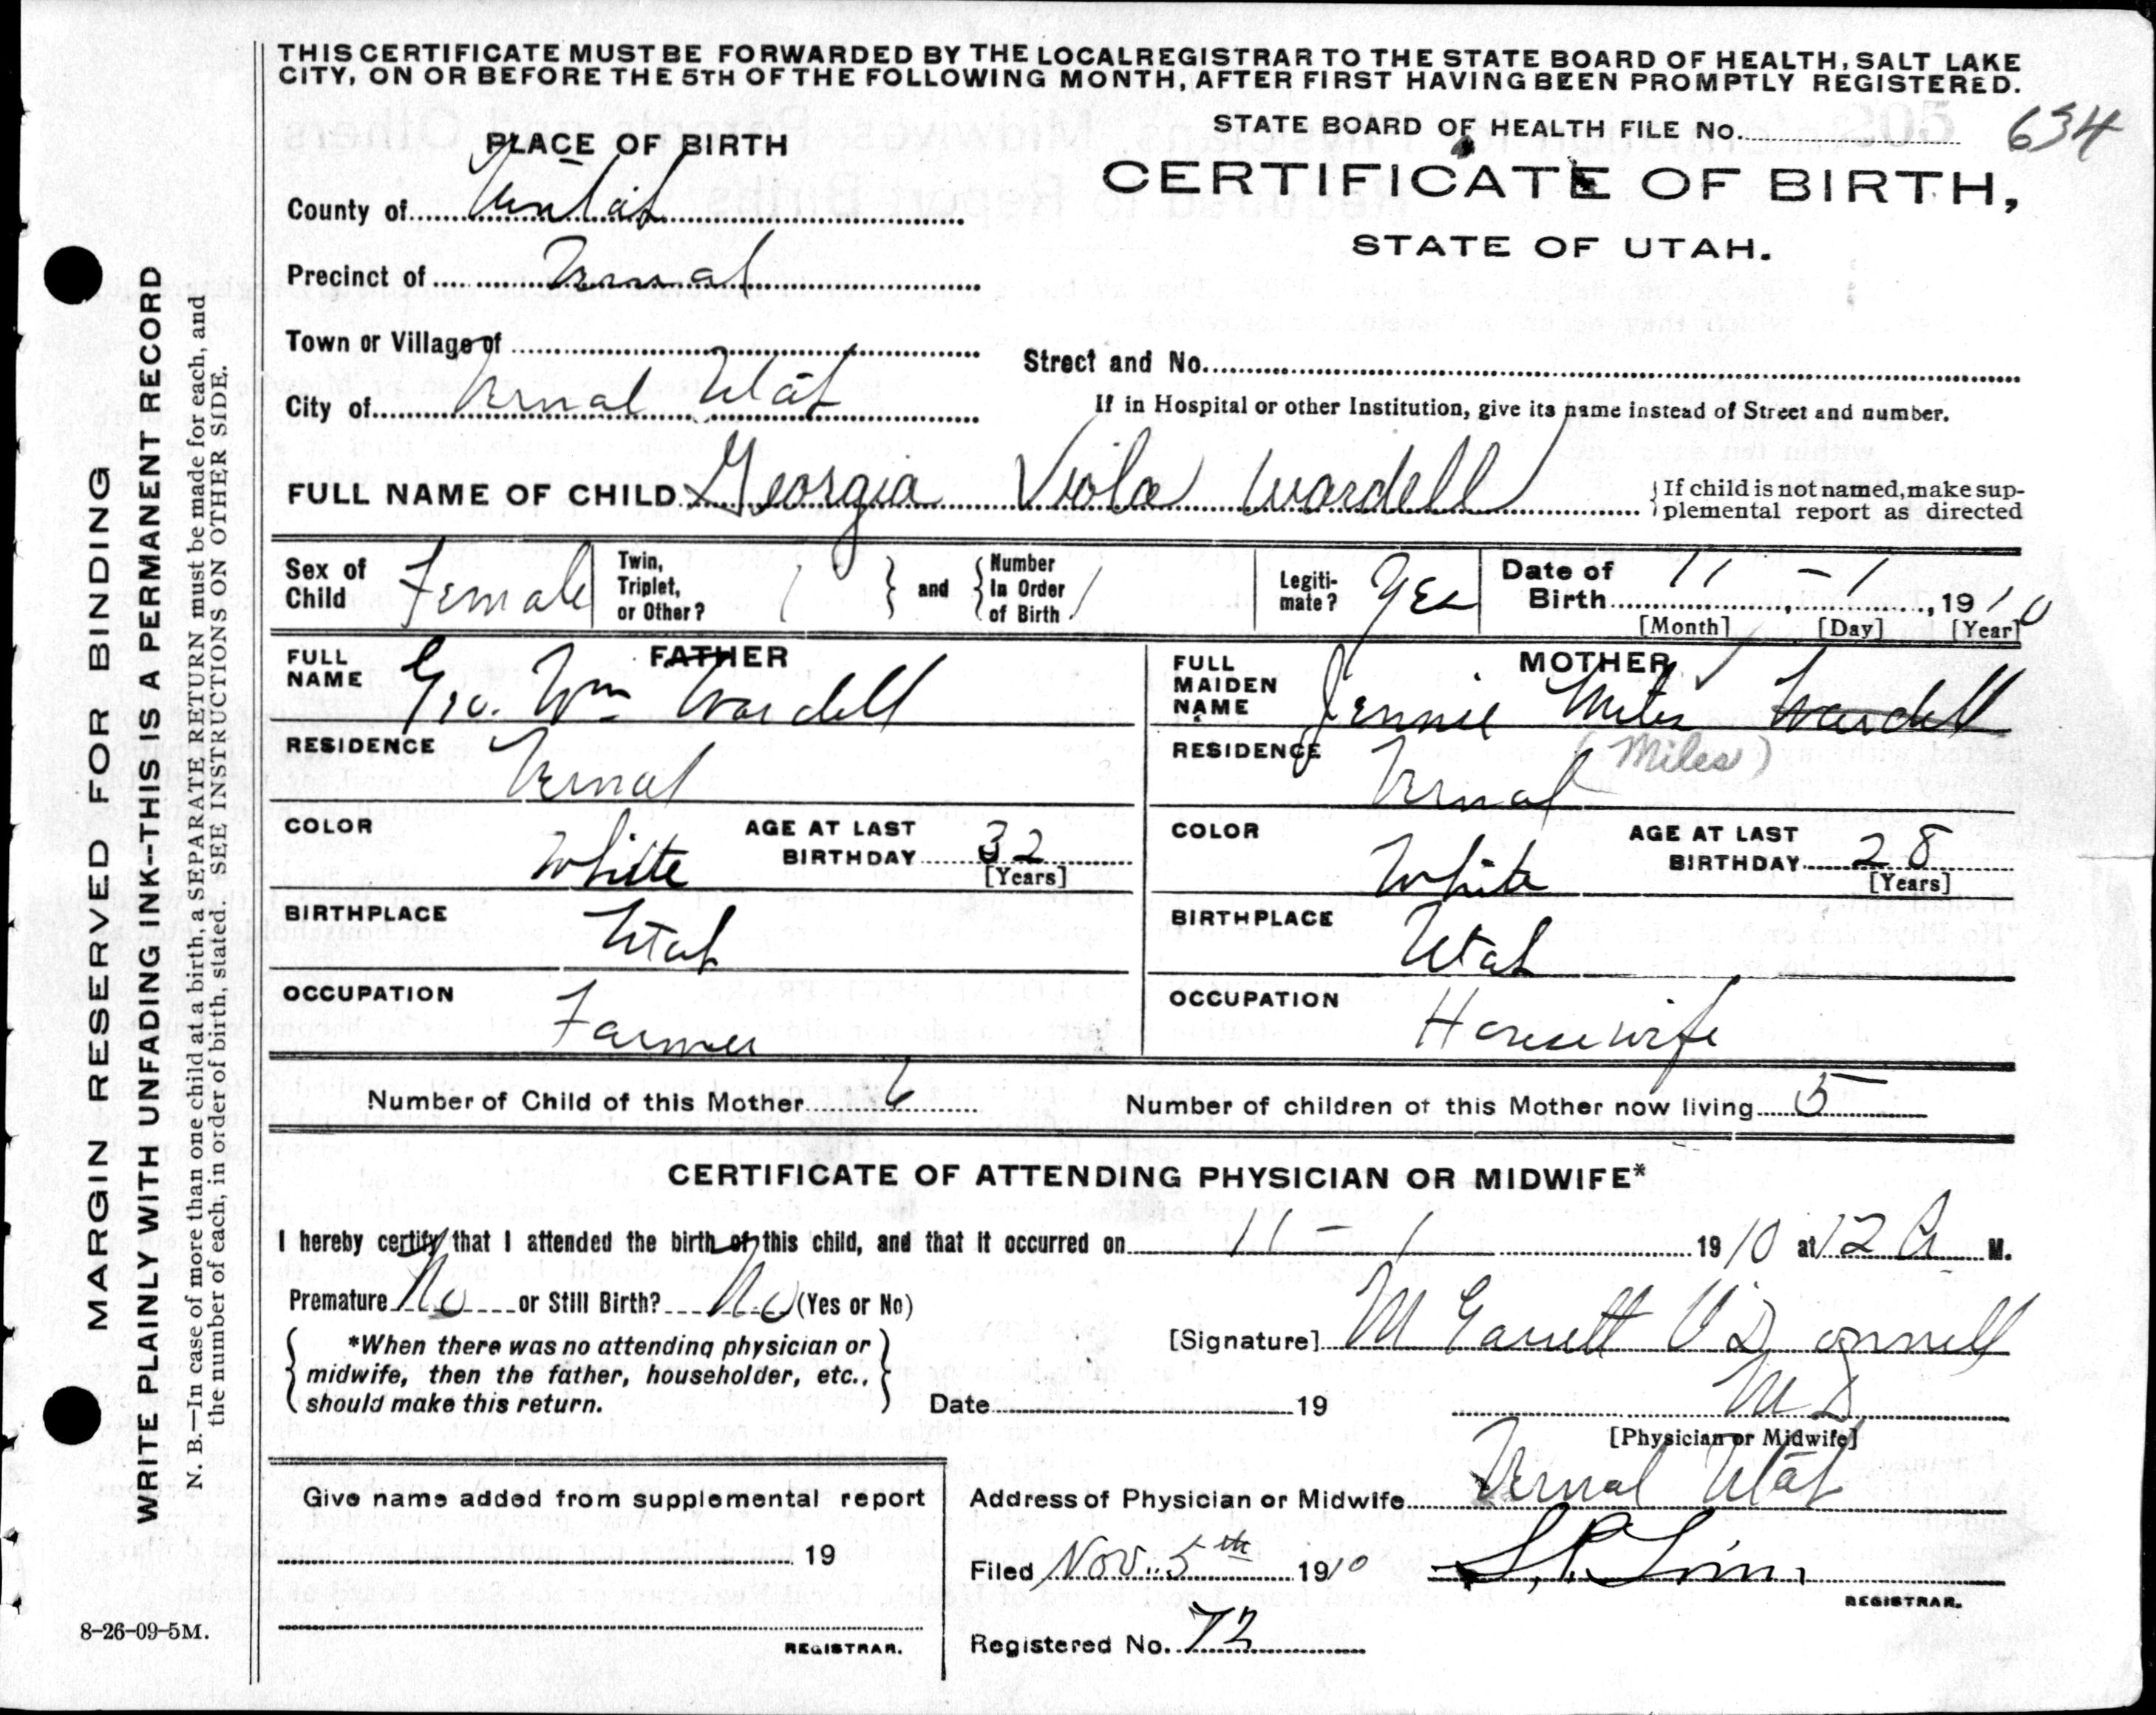 THIS CERTIFICATE MUST BE FORWARDED BY THE LOCAL REGISTRAR TO THE STATE BOARD OF HEALTH, SALT LAKE
CITY, ON OR BEFORE THE 5TH OF THE FOLLOWING MONTH, AFTER FIRST HAVING BEEN PROMPTLY REGISTERED.
STATE BOARD OF HEALTH FILE NO. 634
CERTIFICATE OF BIRTH,
STATE OF UTAH.
PLACE OF BIRTH
County of Uintah
Precinct of Vernal
Town or Village of
Street and No.
City of Vernal Utah
If in Hospital or other Institution, give its name instead of Street and number.
FULL NAME OF CHILD Georgia Viola Wardell
If child is not named, make sup-
plemental report as directed
Sex of Child Female
Twin, Triplet, or Other?
and
Number In Order of Birth
Legiti-mate? Yes
Date of Birth 11 - 1, 1910
[Month] [Day] [Year]
FATHER
FULL NAME Geo. Wm Wardell
RESIDENCE Vernal
COLOR White
AGE AT LAST BIRTHDAY 32
[Years]
BIRTHPLACE Utah
OCCUPATION Farmer
MOTHER
FULL MAIDEN NAME Jennie Miles Wardell
(Miles)
RESIDENCE Vernal
COLOR White
AGE AT LAST BIRTHDAY 28
[Years]
BIRTHPLACE Utah
OCCUPATION Housewife
Number of Child of this Mother 6
Number of children of this Mother now living 5
CERTIFICATE OF ATTENDING PHYSICIAN OR MIDWIFE*
I hereby certify that I attended the birth of this child, and that it occurred on 11 - 1 1910 at 12 A M.
Premature No or Still Birth? No (Yes or No)
*When there was no attending physician or
midwife, then the father, householder, etc.,
should make this return.
[Signature] M Garrett O'Donnell
Date 19
M D
[Physician or Midwife]
Give name added from supplemental report
19
REGISTRAR.
Address of Physician or Midwife Vernal Utah
Filed Nov. 5th 1910
REGISTRAR.
Registered No. 72
MARGIN RESERVED FOR BINDING
WRITE PLAINLY WITH UNFADING INK--THIS IS A PERMANENT RECORD
N. B.—In case of more than one child at a birth, a SEPARATE RETURN must be made for each, and
the number of each, in order of birth, stated. SEE INSTRUCTIONS ON OTHER SIDE.
8-26-09-5M.